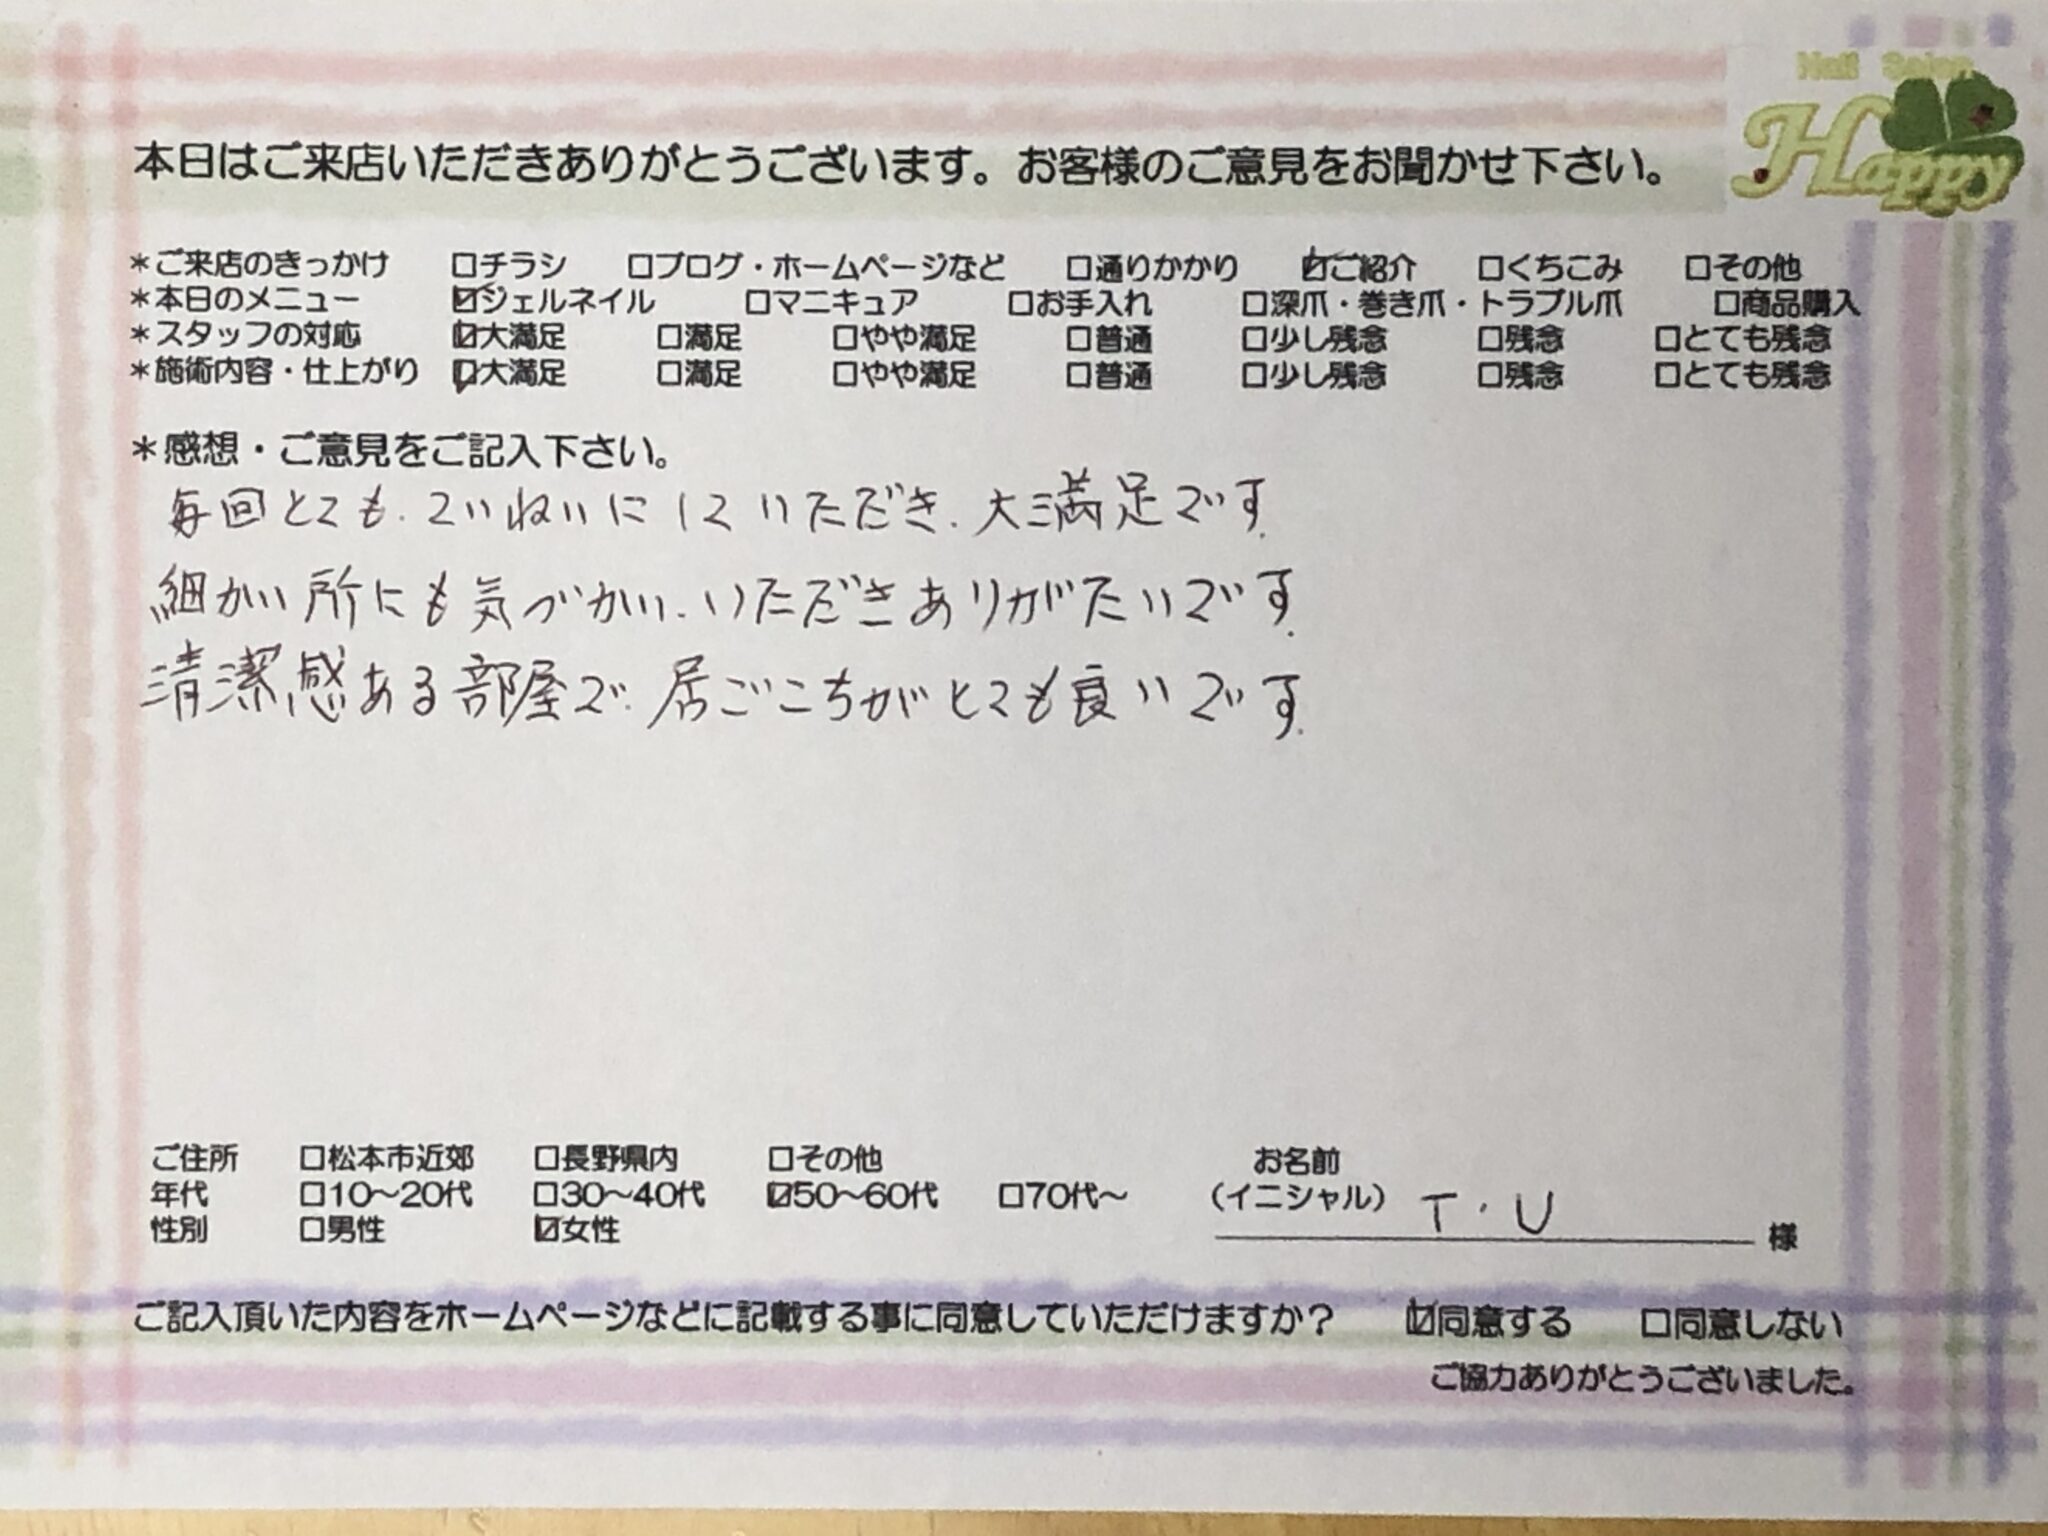 Nail Salon
Happy
本日はご来店いただきありがとうございます。お客様のご意見をお聞かせ下さい。
*ご来店のきっかけ □チラシ □ブログ・ホームページなど □通りかかり ☑ご紹介 □くちこみ □その他
*本日のメニュー ☑ジェルネイル □マニキュア □お手入れ □深爪・巻き爪・トラブル爪 □商品購入
*スタッフの対応 ☑大満足 □満足 □やや満足 □普通 □少し残念 □残念 □とても残念
*施術内容・仕上がり ☑大満足 □満足 □やや満足 □普通 □少し残念 □残念 □とても残念
*感想・ご意見をご記入下さい。
毎回とても、ていねいにしていただき、大満足です。
細かい所にも気づかい、いただきありがたいです。
清潔感ある部屋で、居ごこちがとても良いです。
ご住所 □松本市近郊 □長野県内 □その他 お名前
年代 □10～20代 □30～40代 ☑50～60代 □70代～ (イニシャル) T・U 様
性別 □男性 ☑女性
ご記入頂いた内容をホームページなどに記載する事に同意していただけますか？ ☑同意する □同意しない
ご協力ありがとうございました。